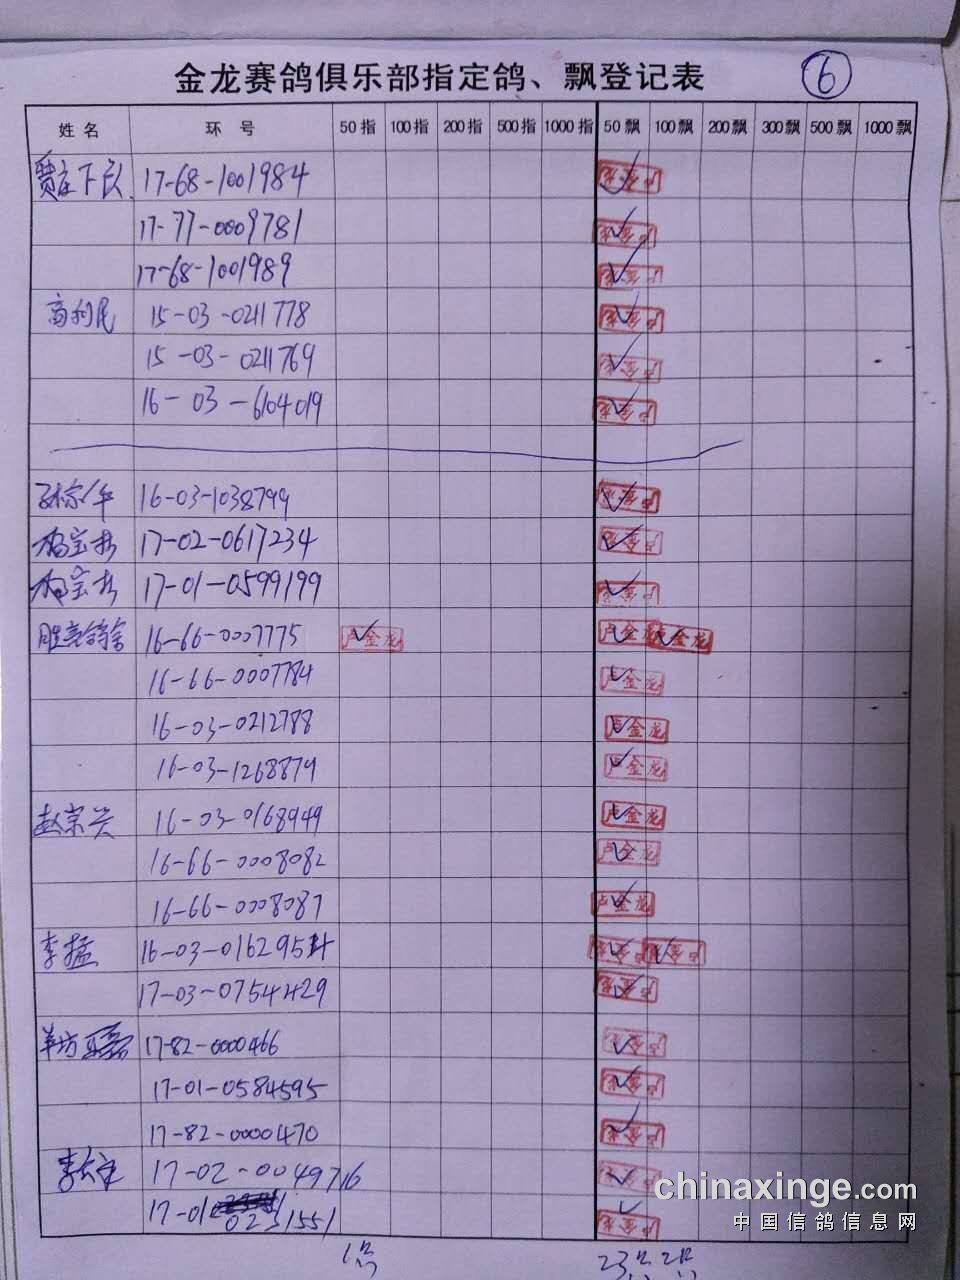 金龙赛鸽俱乐部指定鸽、飘登记表 6
姓名 环号 50指 100指 200指 500指 1000指 50飘 100飘 200飘 300飘 500飘 1000飘
17-68-1001984 卢金龙
17-77-0009781 卢金龙
17-68-1001989 卢金龙
高利民 15-03-0211778 卢金龙
15-03-0211769 卢金龙
16-03-6104019 卢金龙
16-03-1038799 卢金龙
17-02-0617234 卢金龙
17-01-0599199 卢金龙
16-66-0007775 卢金龙 卢金龙 卢金龙
16-66-0007784 卢金龙
16-03-0212788 卢金龙
16-03-1268879 卢金龙
赵宗兴 16-03-0168949 卢金龙
16-66-0008082 卢金龙
16-66-0008087 卢金龙
李猛 16-03-0162954 卢金龙 卢金龙
17-03-0754429 卢金龙
羊坊 17-82-0000466 卢金龙
17-01-0584595 卢金龙
17-82-0000470 卢金龙
17-02-0049716 卢金龙
17-01 0231551 卢金龙
chinaxinge.com
中国信鸽信息网